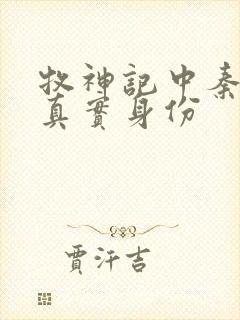 牧神記中秦
真實身份
賈汗吉